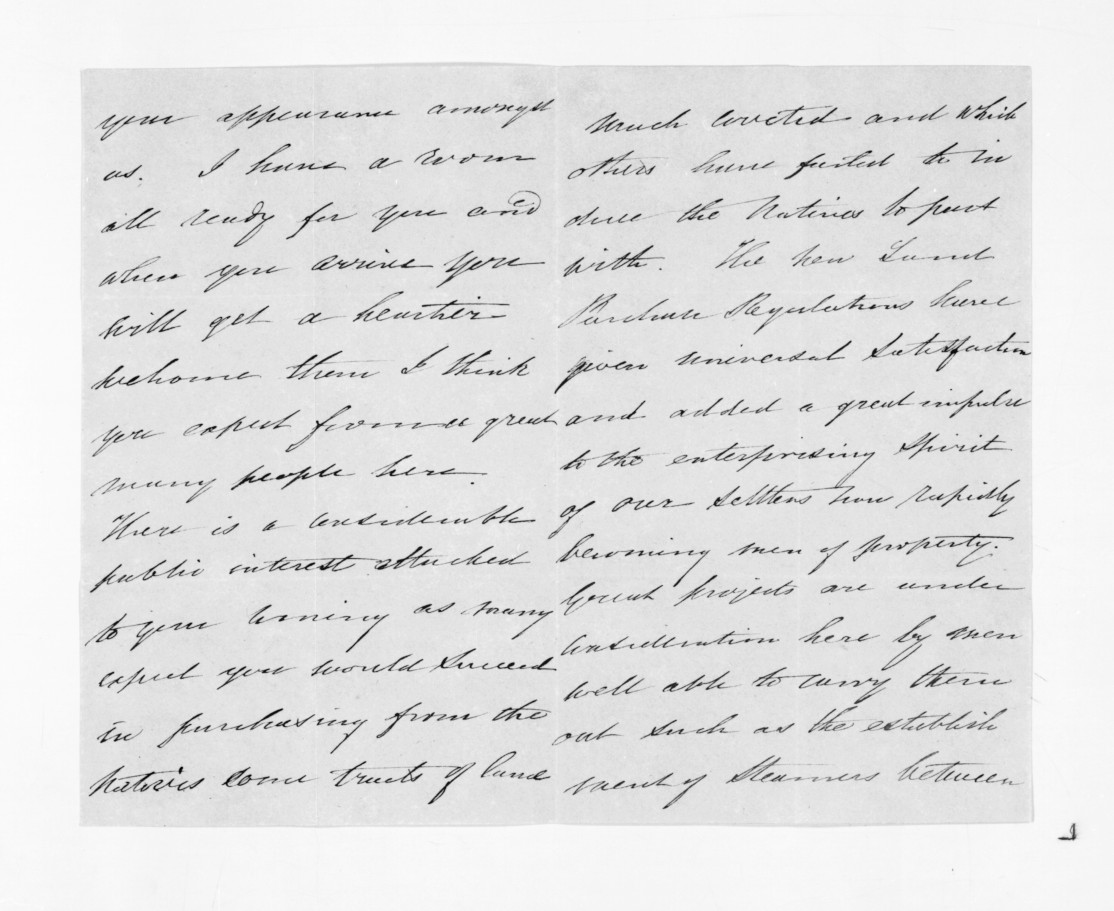 your appearance amongst
us. I have a room
all ready for you and
when you arrive you
will get a heartier
welcome than I think
you expect from a great
many people here.
There is a considerable
public interest attached
to your coming as many
expect you would succeed
in purchasing from the
Natives some tracts of land
much coveted and which
others have failed to in
duce the Natives to part
with. The new Land
Purchase Regulations have
given universal satisfaction
and added a great impulse
to the enterprising spirit
of our settlers now rapidly
becoming men of property.
Great projects are under
consideration here by men
well able to carry them
out such as the establish
ment of Steamers between